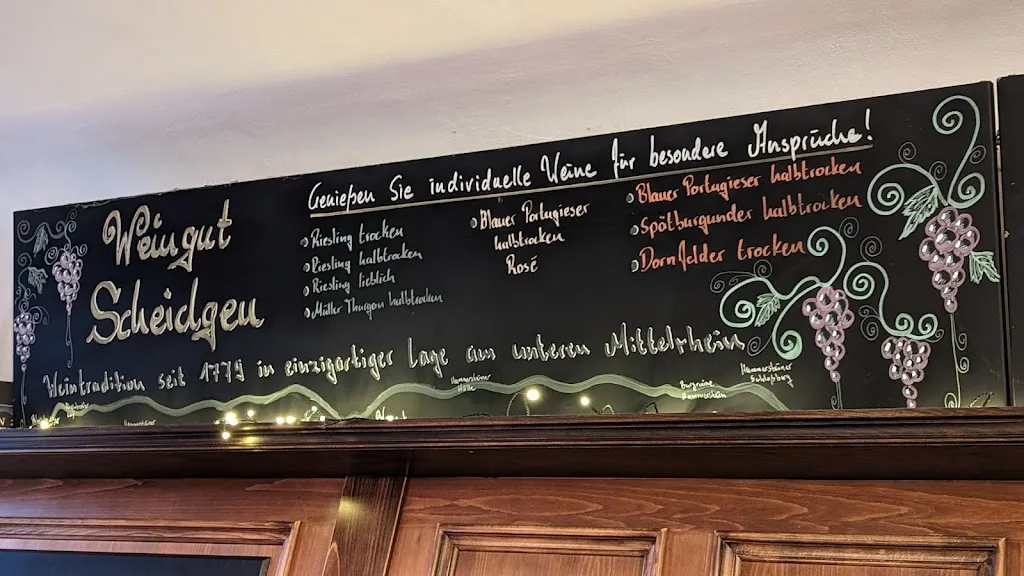 Weingut
Scheidgen
Genießen Sie individuelle Weine für besondere Ansprüche!
Riesling trocken
Riesling halbtrocken
Riesling lieblich
Müller Thurgau halbtrocken
Blauer Portugieser
halbtrocken
Rosé
Blauer Portugieser halbtrocken
Spätburgunder halbtrocken
Dornfelder trocken
Weintradition seit 1779 in einzigartiger Lage am unteren Mittelrhein
Hammersteiner
Hölle
Burgruine
Hammerstein
Hammersteiner
Schloßberg